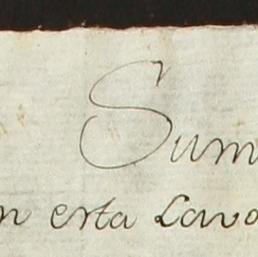 Sum
n esta Lavo